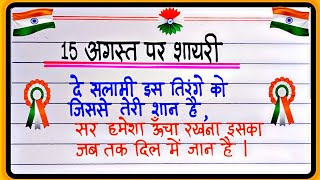 15 अगस्त पर शायरी
दे सलामी इस तिरंगे को
जिससे तेरी शान है,
सर हमेशा ऊँचा रखना इसका
जब तक दिल में जान है।